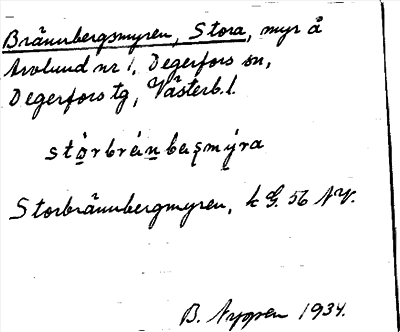 Brännbergsmyren, Stora, myr å
Avalund nr 1, Degerfors sn,
Degerfors tg, Västerb. l.
stòrbrén bæșmýra
Storbrännbergmyren, k G. 56 NV.
B. Nygren 1934.